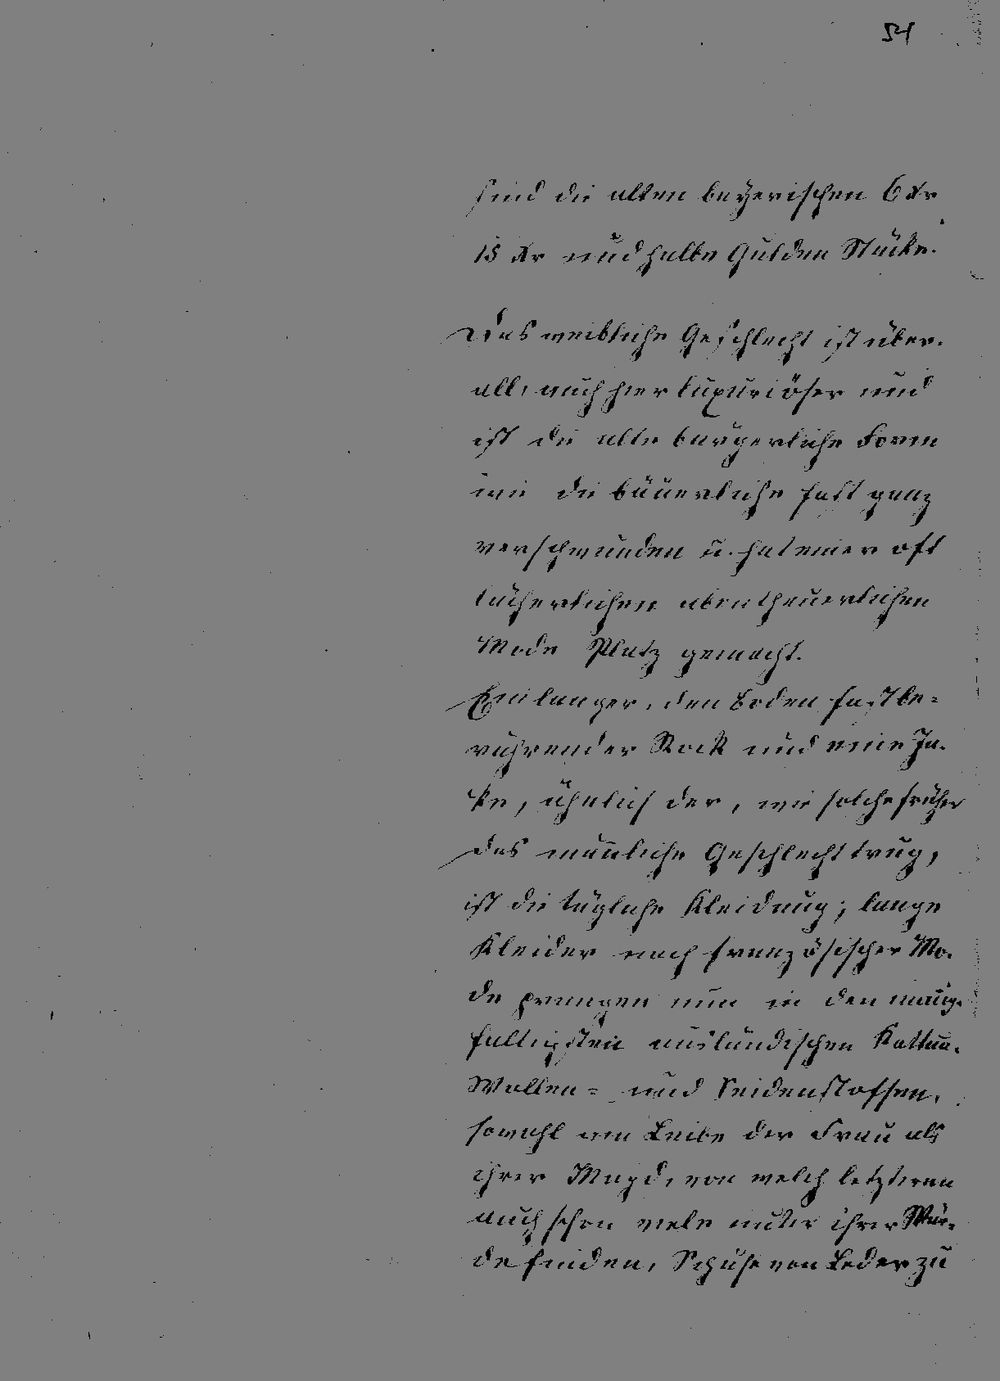 54
sind die alten bayerischen 6 Xr
15 Xr und halbe Gulden Stücke.
Das weibliche Geschlecht ist über-
all, auch hier luxuriöser und
ist die alte bürgerliche Form
wie die bäuerliche fast ganz
verschwunden u. hat einer oft
lächerlichen abentheuerlichen
Mode Platz gemacht.
Ein langer, den Boden fast be=
rührender Rock und eine Ja-
ke, ähnlich der, wie solche früher
das männliche Geschlecht trug,
ist die tägliche Kleidung; lange
Kleider nach französischer Mo-
de prangen nun in den manig-
faltigsten ausländischen Kattun-
Wollen= und Seidenstoffen,
sowohl am Leibe der Frau als
ihrer Magd, von welch letzteren
auch schon viele unter ihrer Wür-
de finden, Schuhe von Leder zu